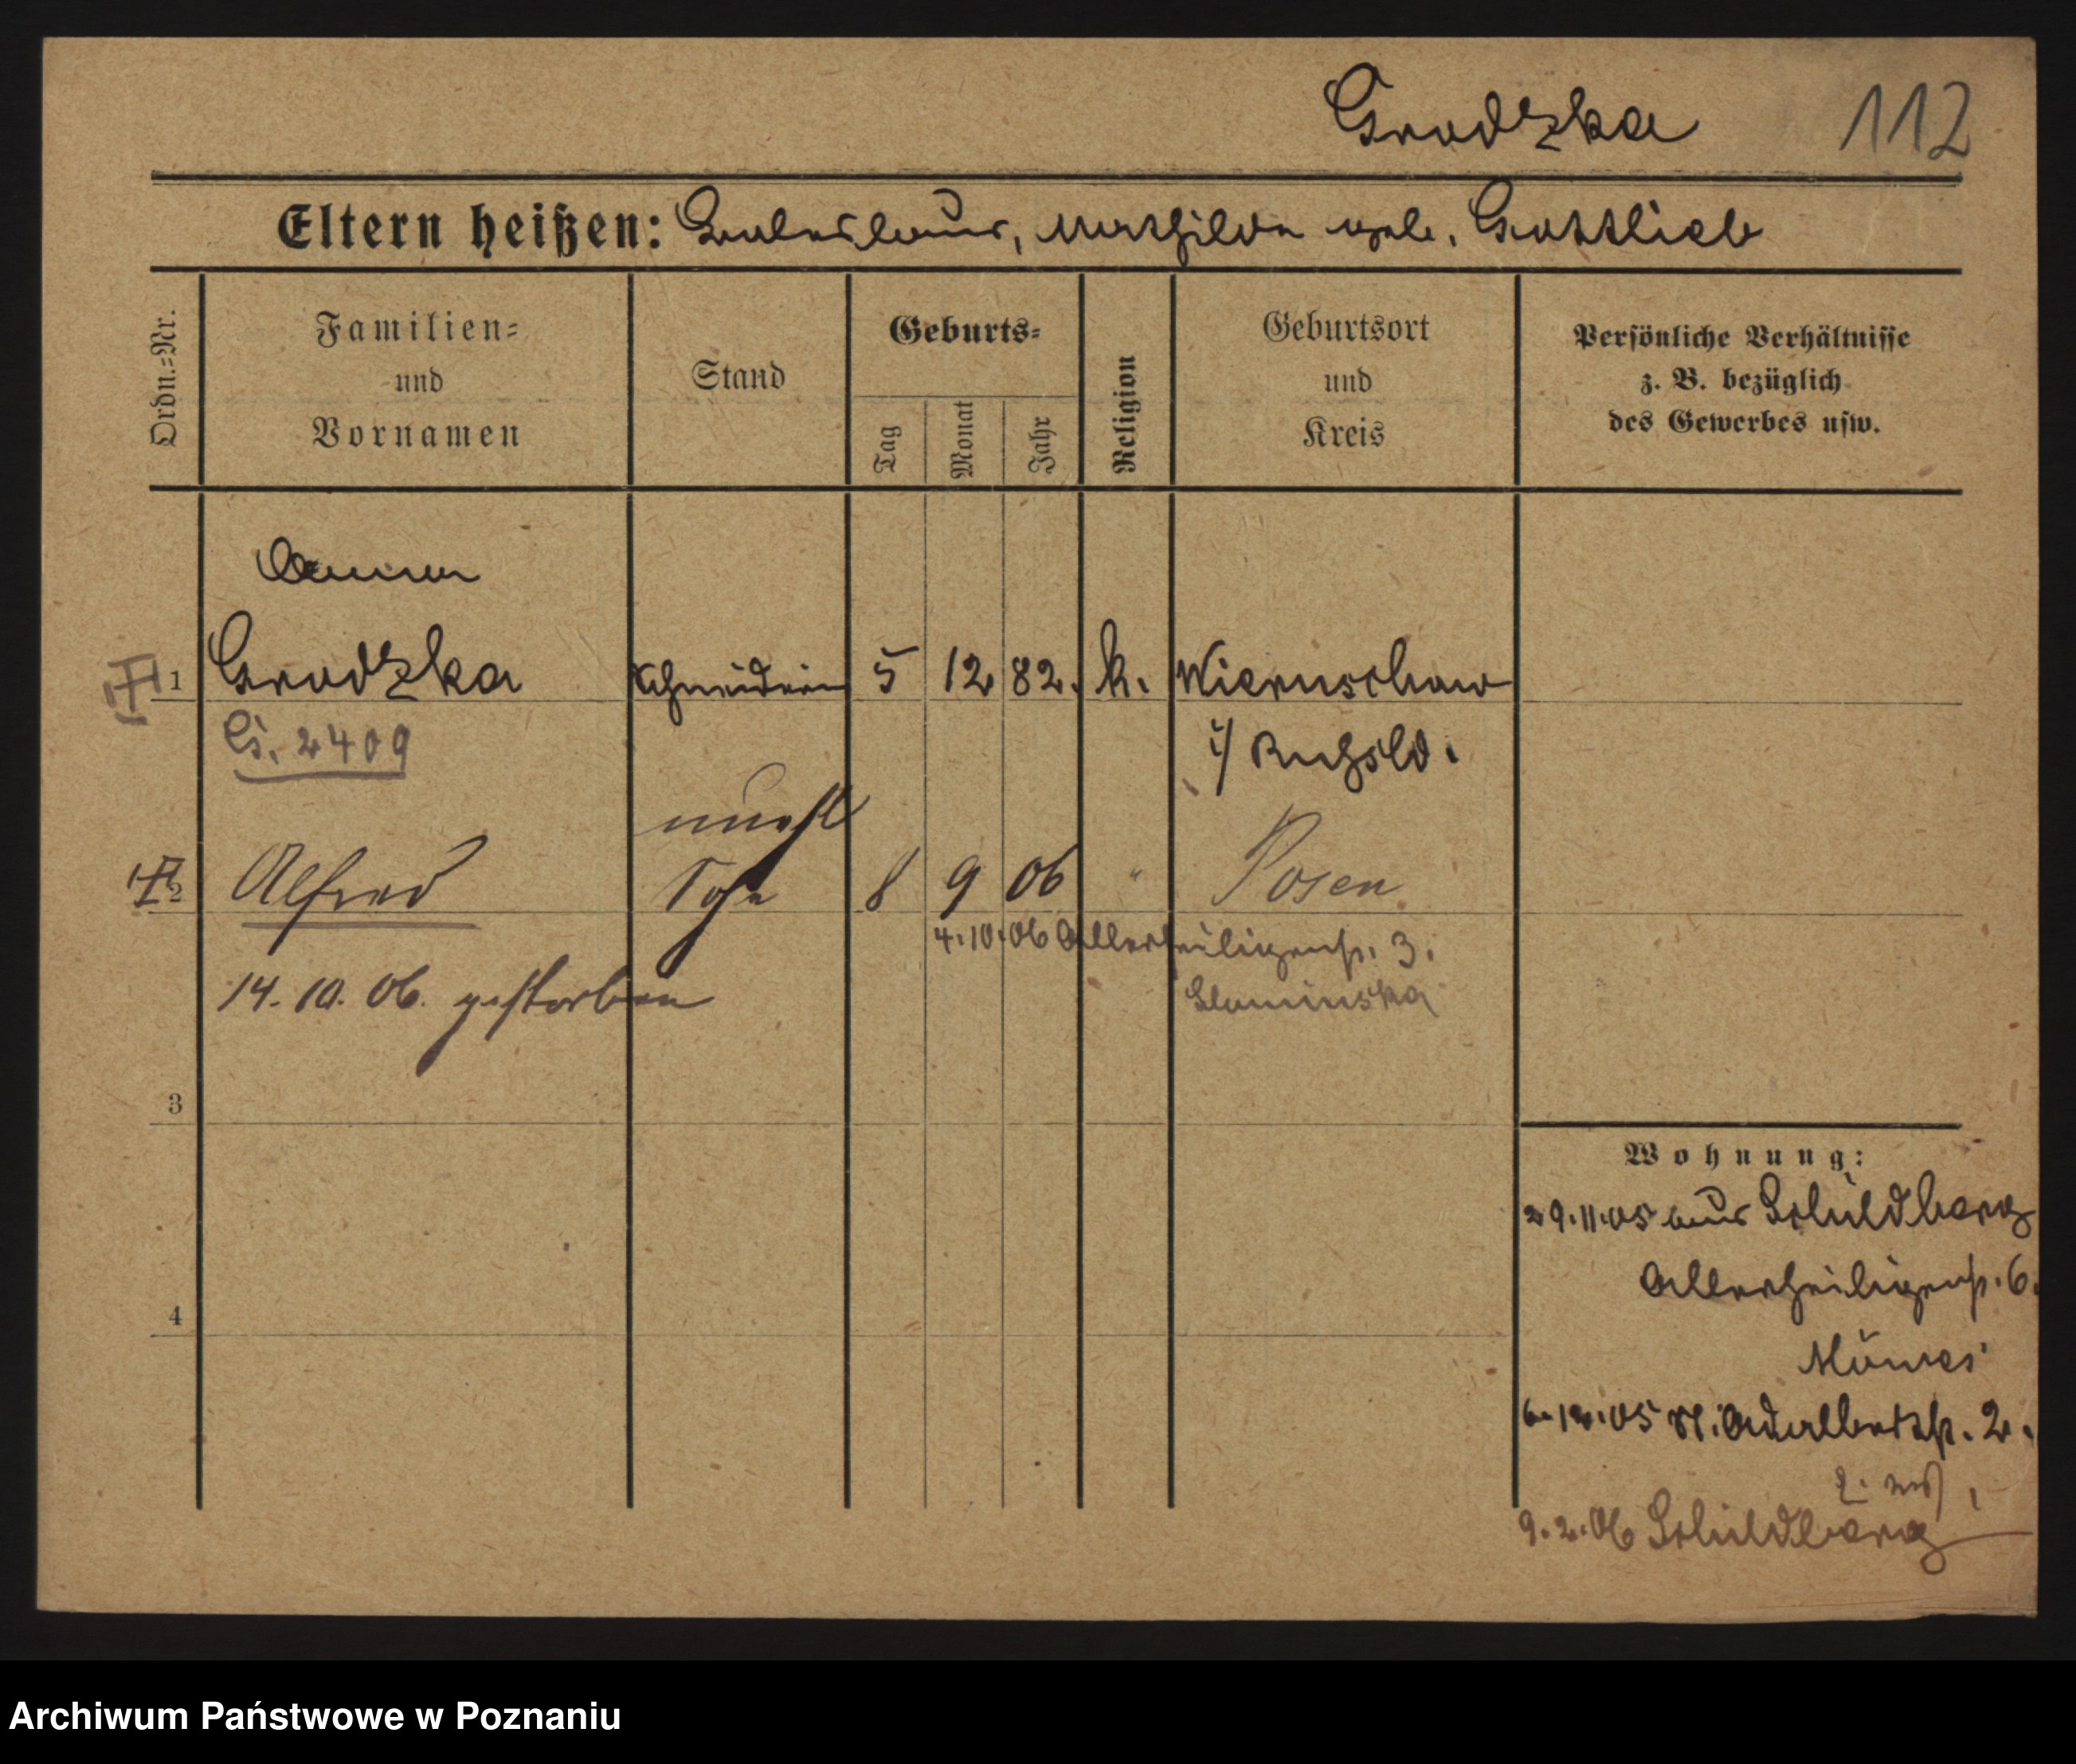 Grodzka 112
Eltern heißen: Ladislaus, Mathilde geb. Gottlieb
Ordn.=Nr.
Familien=
und
Vornamen
Stand
Geburts=
Tag
Monat
Jahr
Religion
Geburtsort
und
Kreis
Persönliche Verhältnisse
z. B. bezüglich
des Gewerbes usw.
Anna
1 Grodzka Schneiderin 5 12 82. k. Wieruschow
2409 i/ Rußld.
unehl
2 Alfred Sohn 8 9 06 " Posen
4.10.06 Allerheiligenstr. 3.
14.10.06. gestorben Slaminska
3
4
Wohnung:
29.11.05 aus Schildberg
Allerheiligenstr. 6.
6.12.05 St. Adalbertstr. 2.
9.2.06 Schildberg
Archiwum Państwowe w Poznaniu